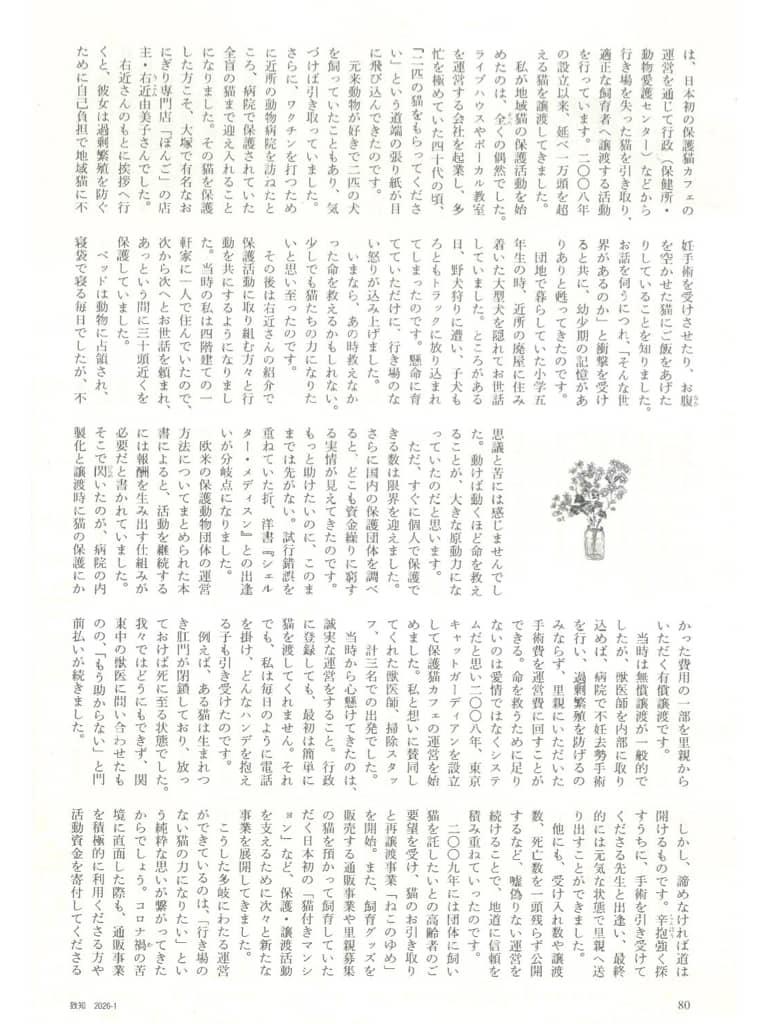 は、日本初の保護猫カフェの
運営を通じて行政（保健所・
動物愛護センター）などから
行き場を失った猫を引き取り、
適正な飼育者へ譲渡する活動
を行っています。二〇〇八年
の設立以来、延べ一万頭を超
える猫を譲渡してきました。
私が地域猫の保護活動を始
めたのは、全くの偶然でした。
ライブハウスやボーカル教室
を運営する会社を起業し、多
忙を極めていた四十代の頃、
「二匹の猫をもらってくださ
い」という道端の張り紙が目
に飛び込んできたのです。
元来動物が好きで二匹の犬
を飼っていたこともあり、気
づけば引き取っていました。
さらに、ワクチンを打つため
に近所の動物病院を訪ねたと
ころ、病院で保護されていた
全盲の猫まで迎え入れること
になりました。その猫を保護
した方こそ、大塚で有名なお
にぎり専門店「ぼんご」の店
主・右近由美子さんでした。
右近さんのもとに挨拶へ行
くと、彼女は過剰繁殖を防ぐ
ために自己負担で地域猫に不
妊手術を受けさせたり、お腹
を空かせた猫にご飯をあげた
りしていることを知りました。
お話を伺うにつれ、「そんな世
界があるのか」と衝撃を受け
ると共に、幼少期の記憶があ
りありと甦ってきたのです。
団地で暮らしていた小学五
年生の時、近所の廃屋に住み
着いた大型犬を隠れてお世話
していました。ところがある
日、野犬狩りに遭い、子犬も
ろともトラックに放り込まれ
てしまったのです。懸命に育
てていただけに、行き場のな
い怒りが込み上げました。
いまなら、あの時救えなか
った命を救えるかもしれない。
少しでも猫たちの力になりた
いと思い至ったのです。
その後は右近さんの紹介で
保護活動に取り組む方々と行
動を共にするようになりまし
た。当時の私は四階建ての一
軒家に一人で住んでいたので、
次から次へとお世話を頼まれ、
あっという間に三十頭近くを
保護していました。
ベッドは動物に占領され、
寝袋で寝る毎日でしたが、不
思議と苦には感じませんでし
た。動けば動くほど命を救え
ることが、大きな原動力にな
っていたのだと思います。
ただ、すぐに個人で保護で
きる数は限界を迎えました。
さらに国内の保護団体を調べ
ると、どこも資金繰りに窮す
る実情が見えてきたのです。
もっと助けたいのに、このま
までは先がない。試行錯誤を
重ねていた折、洋書『シェル
ター・メディスン』との出逢
いが分岐点になりました。
欧米の保護動物団体の運営
方法についてまとめられた本
書によると、活動を継続する
には報酬を生み出す仕組みが
必要だと書かれていました。
そこで閃いたのが、病院の内
製化と譲渡時に猫の保護にか
かった費用の一部を里親から
いただく有償譲渡です。
当時は無償譲渡が一般的で
したが、獣医師を内部に取り
込めば、病院で不妊去勢手術
を行い、過剰繁殖を防げるの
みならず、里親にいただいた
手術費を運営費に回すことが
できる。命を救うために足り
ないのは愛情ではなくシステ
ムだと思い二〇〇八年、東京
キャットガーディアンを設立
して保護猫カフェの運営を始
めました。私と想いに賛同し
てくれた獣医師、掃除スタッ
フ、計三名での出発でした。
当時から心懸けてきたのは、
誠実な運営をすること。行政
に登録しても、最初は簡単に
猫を渡してくれません。それ
でも、私は毎日のように電話
を掛け、どんなハンデを抱え
る子も引き受けたのです。
例えば、ある猫は生まれつ
き肛門が閉鎖しており、放っ
ておけば死に至る状態でした。
我々ではどうにもできず、関
東中の獣医に問い合わせたも
のの、「もう助からない」と門
前払いが続きました。
しかし、諦めなければ道は
開けるものです。辛抱強く探
すうちに、手術を引き受けて
くださる先生と出逢い、最終
的には元気な状態で里親へ送
り出すことができました。
他にも、受け入れ数や譲渡
数、死亡数を一頭残らず公開
するなど、嘘偽りない運営を
続けることで、地道に信頼を
積み重ねていったのです。
二〇〇九年には団体に飼い
猫を託したいとの高齢者のご
要望を受け、猫のお引き取り
と再譲渡事業「ねこのゆめ」
を開始。また、飼育グッズを
販売する通販事業や里親募集
の猫を預かって飼育していた
だく日本初の「猫付きマンシ
ョン」など、保護・譲渡活動
を支えるために次々と新たな
事業を展開してきました。
こうした多岐にわたる運営
ができているのは、「行き場の
ない猫の力になりたい」とい
う純粋な思いが繋がってきた
からでしょう。コロナ禍の苦
境に直面した際も、通販事業
を積極的に利用くださる方や
活動資金を寄付してくださる
致知 2026-1
80